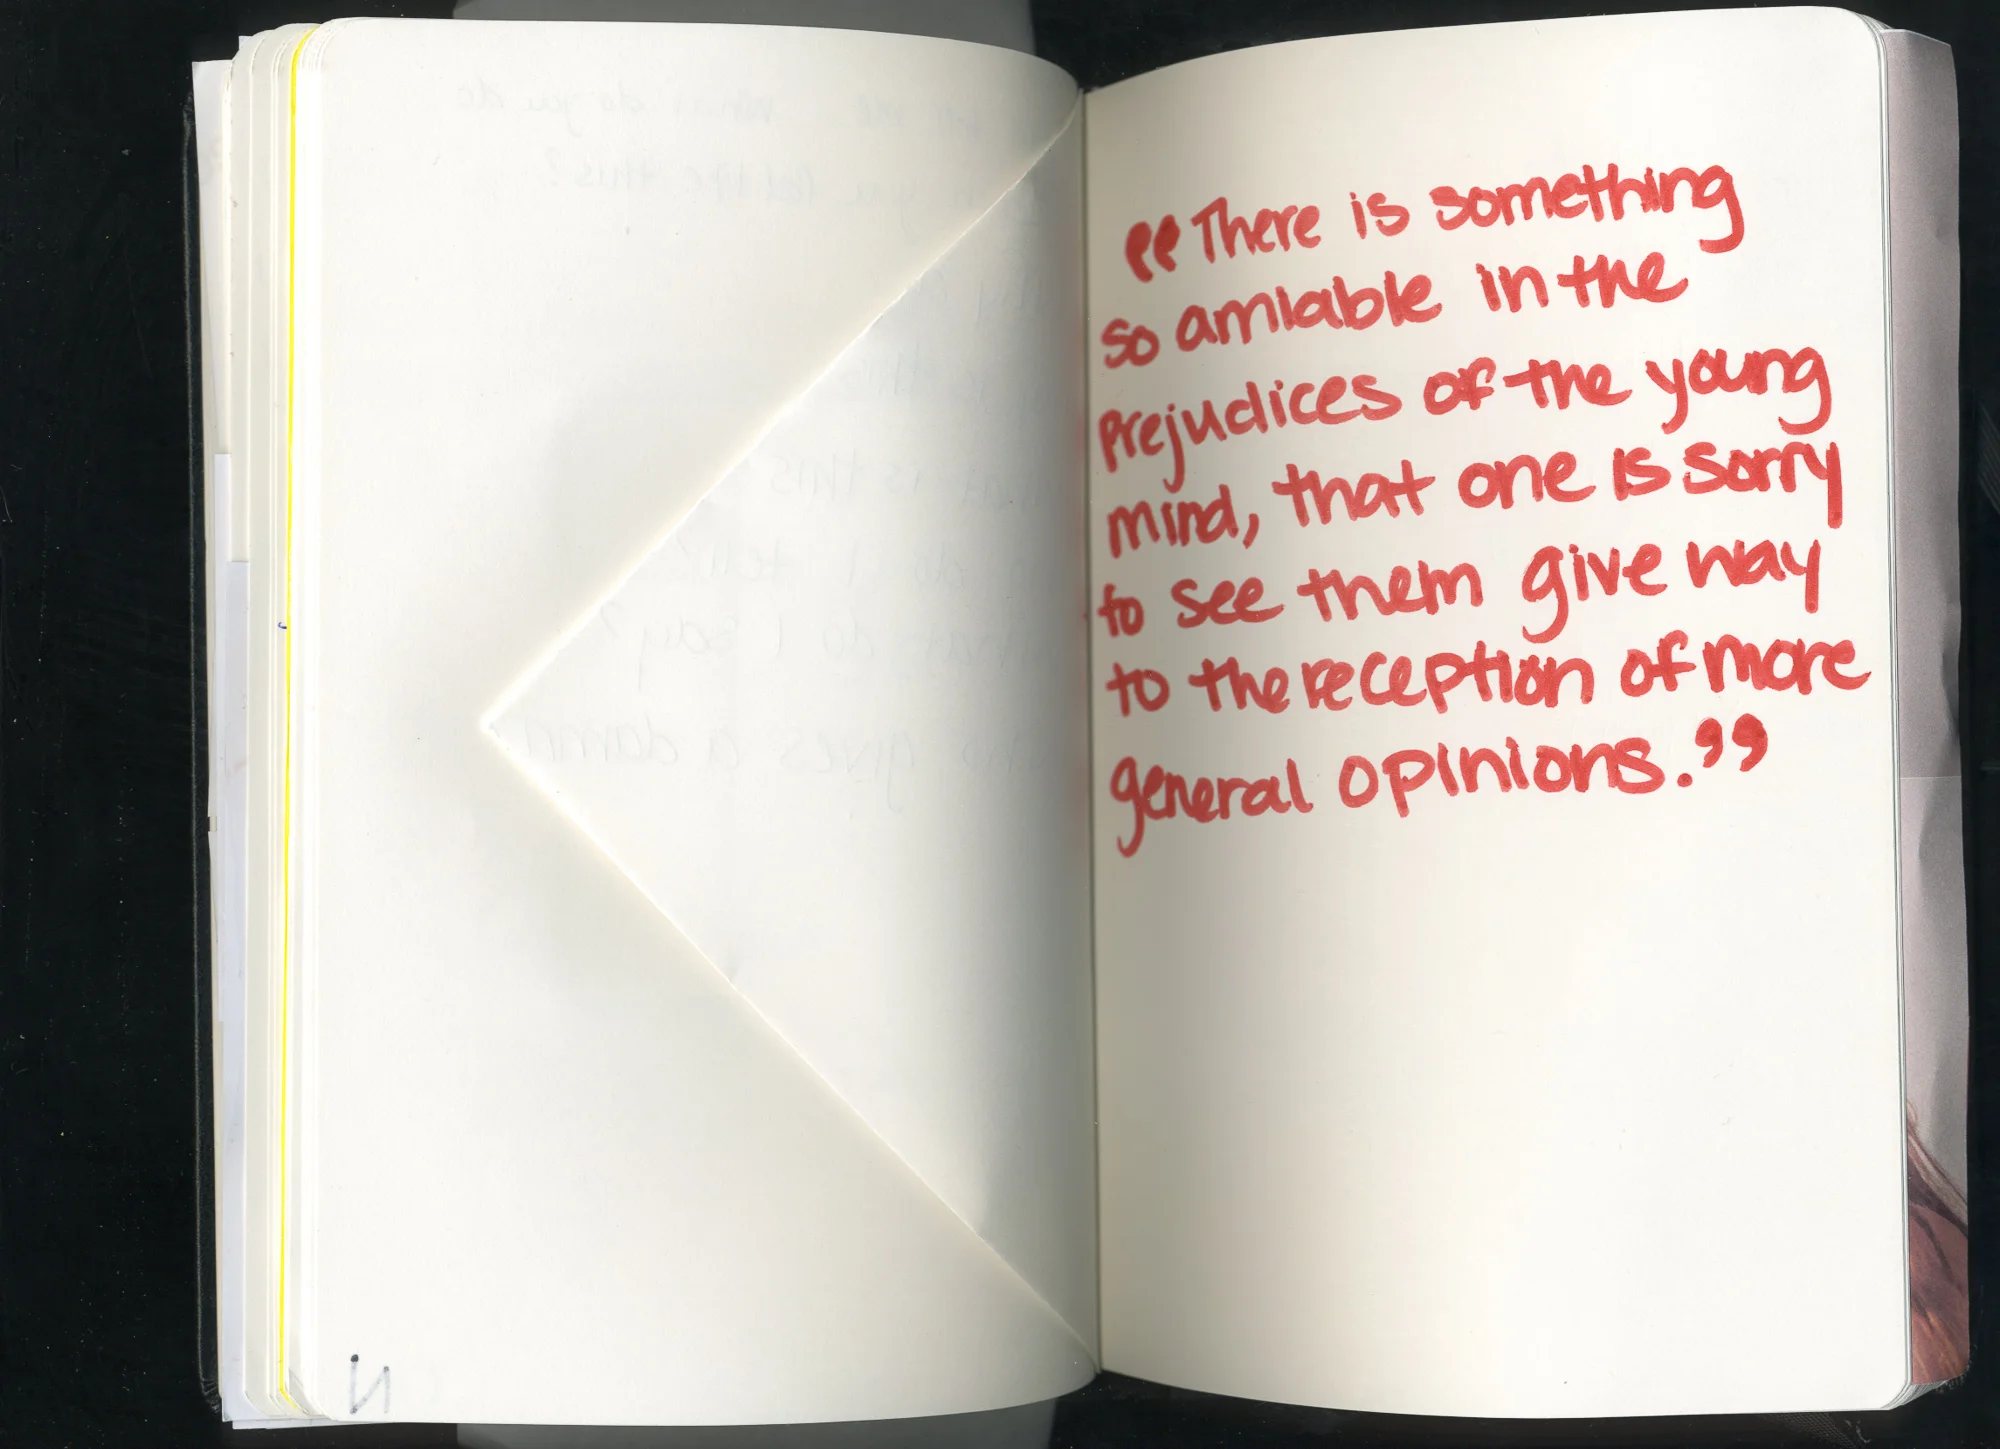 “There is something
so amiable in the
Prejudices of the young
mind, that one is sorry
to see them give way
to the reception of more
general opinions.”